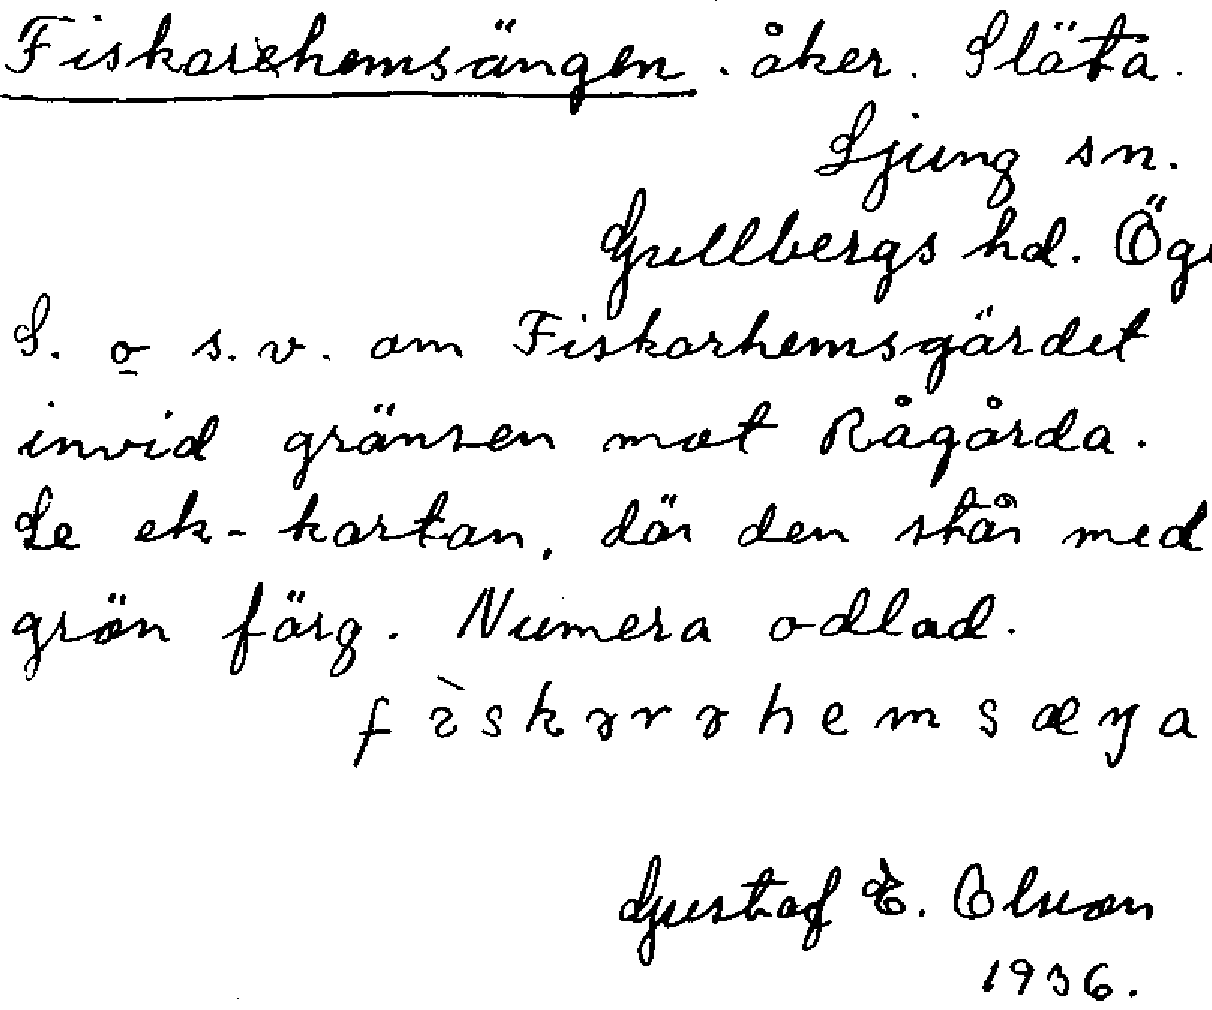 Fiskarehemsängen. åker. Släta.
Ljung sn.
Gullbergs hd. Ög
S. o s.v. om Fiskarhemsgärdet
invid gränsen mot Rågårda.
Se ek-kartan, där den står med
grön färg. Numera odlad.
Gustaf E. Olson
1936.